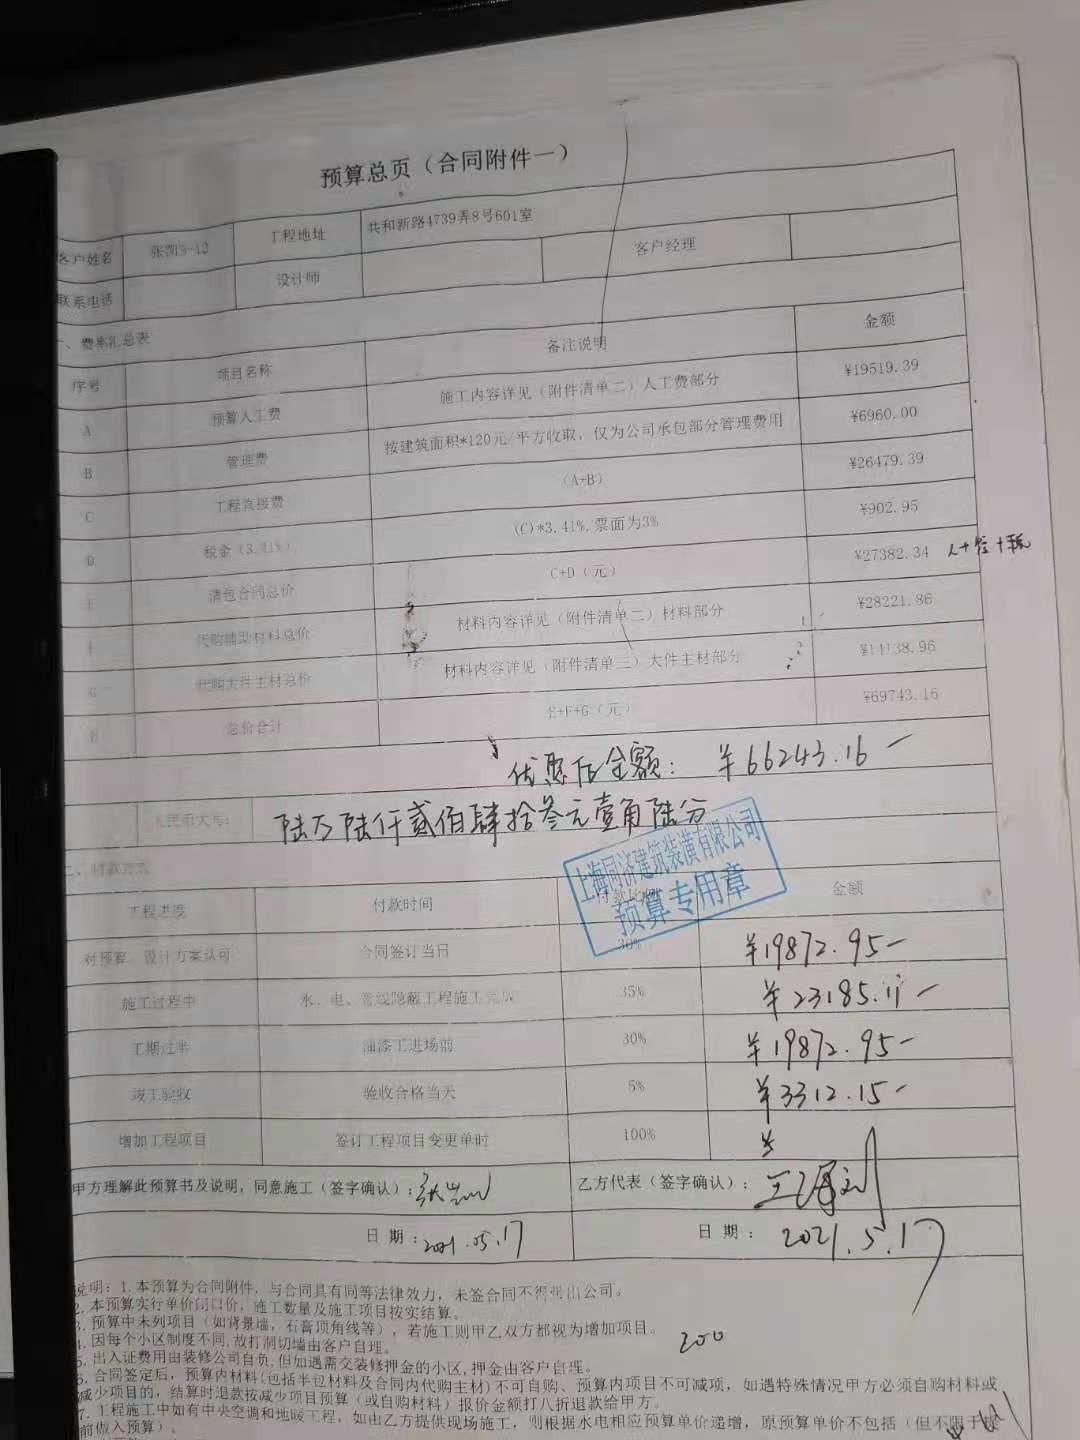 预算总页（合同附件一）
客户姓名 张凯5-12 工程地址 共和新路4739弄8号601室
联系电话 设计师 客户经理
一、费率汇总表
序号 项目名称 备注说明 金额
A 预算人工费 施工内容详见（附件清单二）人工费部分 ¥19519.39
B 管理费 按建筑面积*120元/平方收取，仅为公司承包部分管理费用 ¥6960.00
C 工程直接费 （A+B） ¥26479.39
D 税金（3.41%） (C)*3.41%,票面为3% ¥902.95
E 清包合同总价 C+D（元） ¥27382.34 人+管+税
F 代购辅助材料总价 材料内容详见（附件清单二）材料部分 ¥28221.86
G 代购大件主材总价 材料内容详见（附件清单三）大件主材部分 ¥14138.96
H 总价合计 E+F+G（元） ¥69743.16
优惠后金额： ¥66243.16
人民币大写： 陆万陆仟贰佰肆拾叁元壹角陆分
上海同济建筑装潢有限公司
预算专用章
二、付款方式
工程进度 付款时间 付款比例 金额
对预算、设计方案认可 合同签订当日 30% ¥19872.95
施工过程中 水、电、管线隐蔽工程施工完成 35% ¥23185.11
工期过半 油漆工进场前 30% ¥19872.95
竣工验收 验收合格当天 5% ¥3312.15
增加工程项目 签订工程项目变更单时 100% ¥
甲方理解此预算书及说明，同意施工（签字确认）： 乙方代表（签字确认）：
日期：2021.05.17 日期：2021.5.17
说明：1.本预算为合同附件，与合同具有同等法律效力，未签合同不得带出公司。
2.本预算实行单价闭口价，施工数量及施工项目按实结算。
3.预算中未列项目（如背景墙，石膏顶角线等），若施工则甲乙双方都视为增加项目。
4.因每个小区制度不同,故打洞切墙由客户自理。
200
5.出入证费用由装修公司自负,但如遇需交装修押金的小区,押金由客户自理。
6.合同签定后，预算内材料(包括半包材料及合同内代购主材)不可自购、预算内项目不可减项，如遇特殊情况甲方必须自购材料或
减少项目的，结算时退款按减少项目预算（或自购材料）报价金额打八折退款给甲方。
7.工程施工中如有中央空调和地暖工程，如由乙方提供现场施工，则根据水电相应预算单价递增，原预算单价不包括（但不限于
前做入预算）。